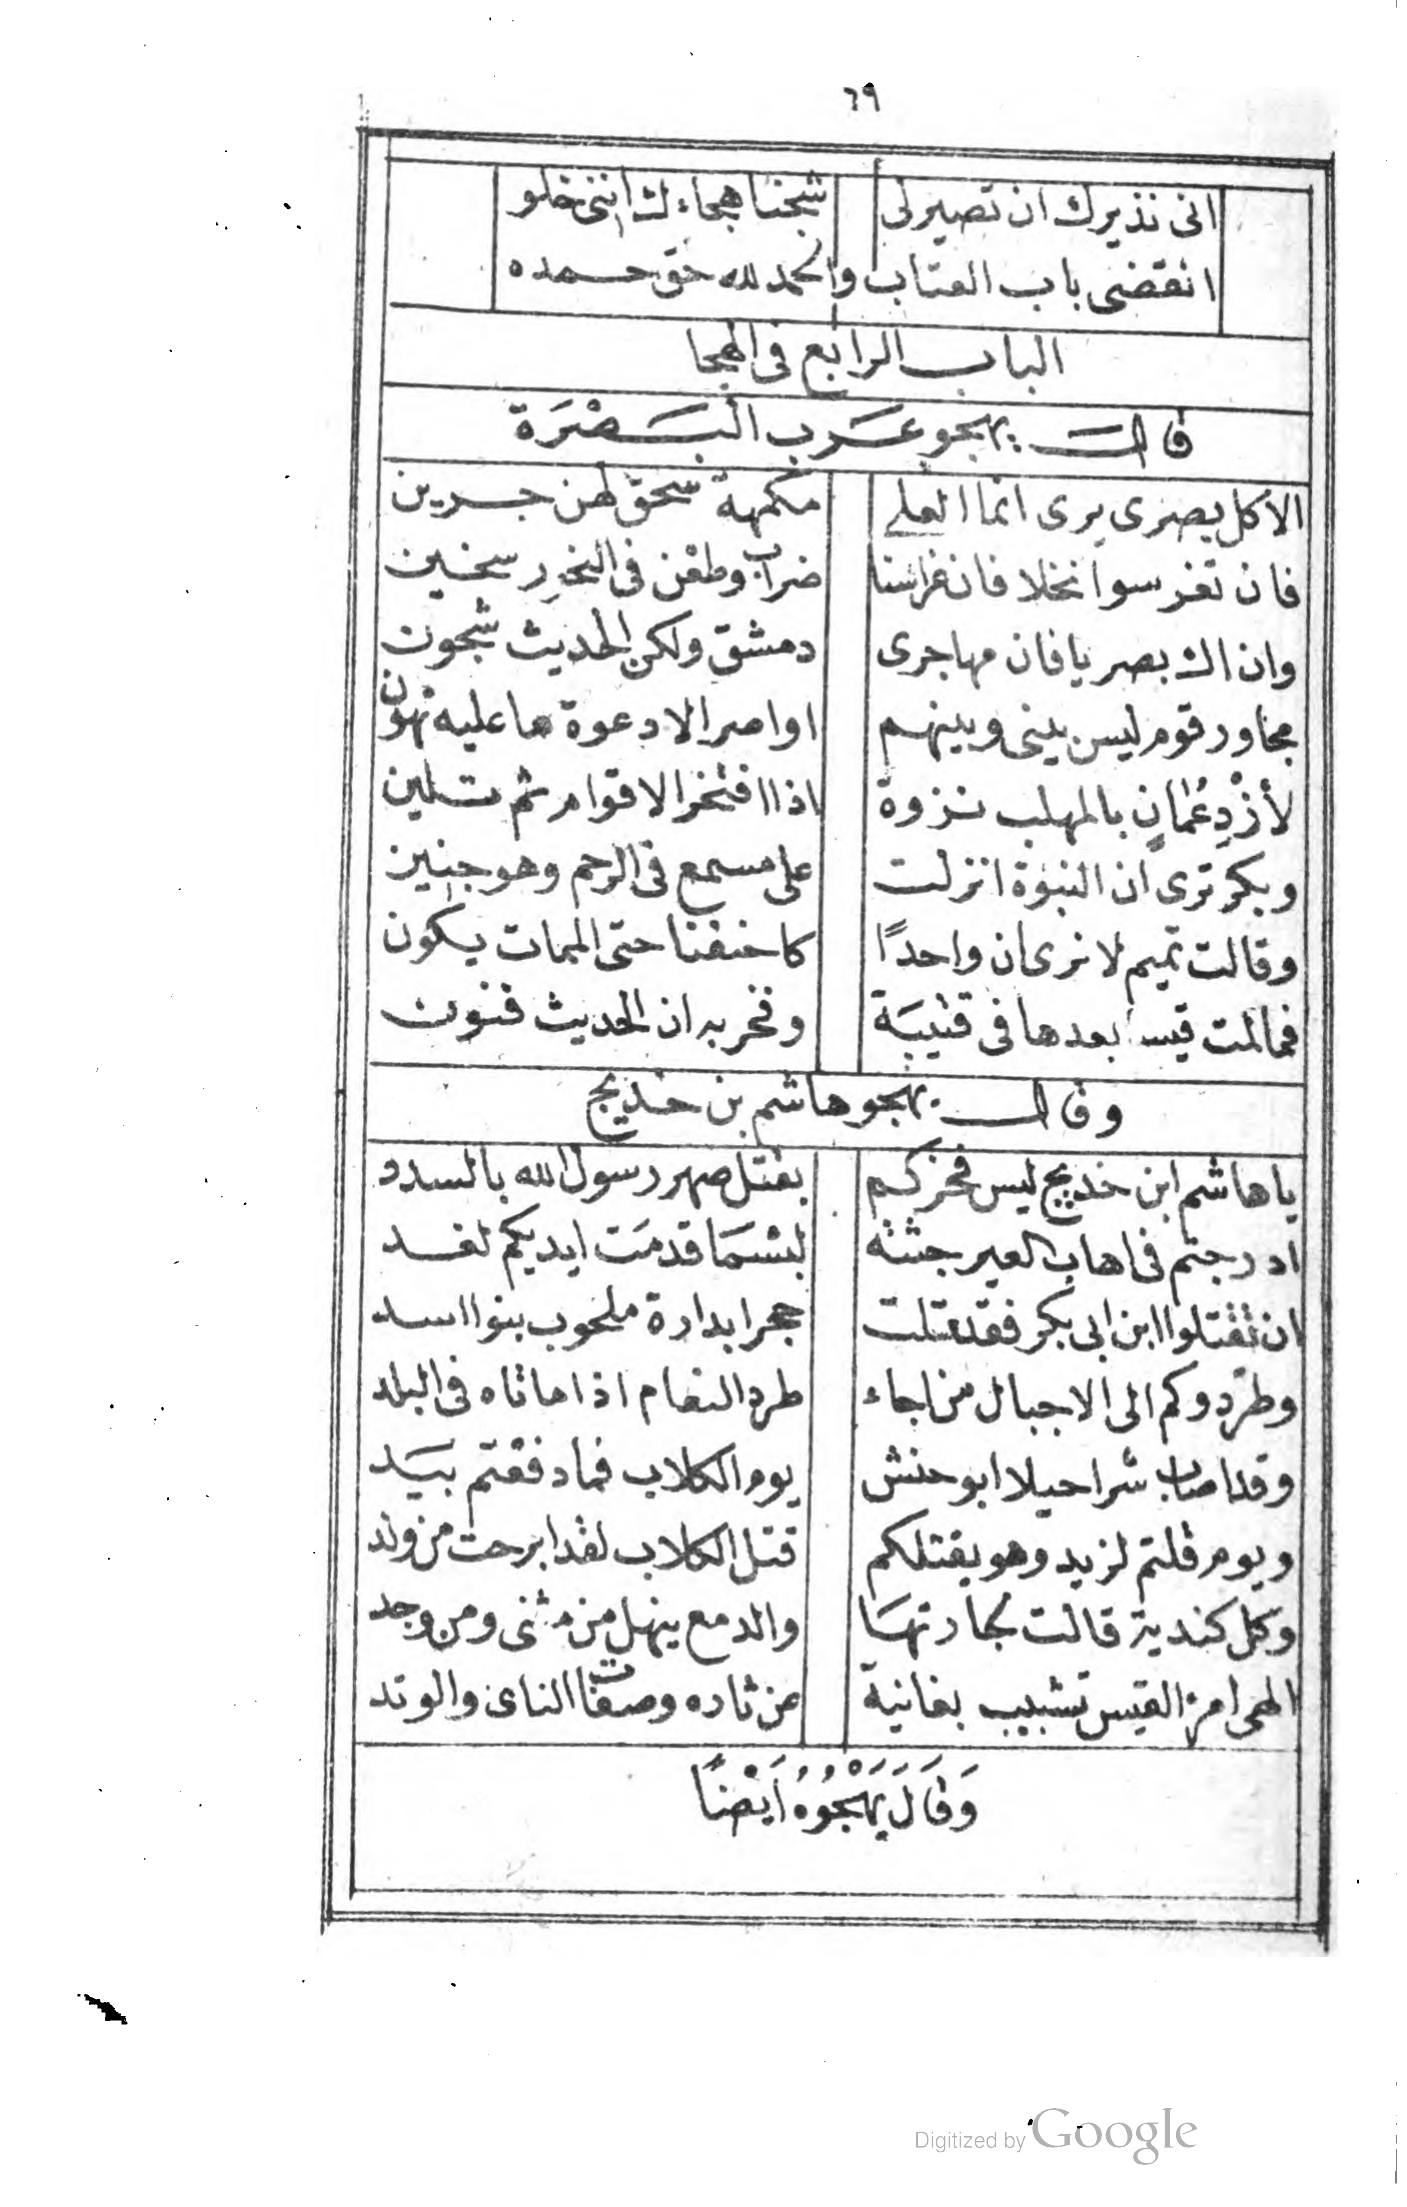 ٦٩
انى نذيرك ان تصيرلى شجنا هجاءك اننى خلو
انقضى باب العتاب والحمد لله حق حمده
الباب الرابع فى الهجا
قال يهجو عَرب البَصْرَة
الا كل بصرى يرى انما العلى مكمهة سحق لهن جرين
فان تغرسوا نخلا فان غراسنا ضراب وطعن فى النحور سخين
وان اك بصريا فان مهاجرى دمشق ولكن الحديث شجون
مجاور قوم ليس بينى وبينهم اواصر الا دعوة ها عليه تهون
لأزْدِ عُمانٍ بالمهلب نزوة اذا افتخر الاقوام ثم تلين
وبكر ترى ان النبوة انزلت على مسمع فى الرحم وهو جنين
وقالت تميم لا نرى ان واحدًا كاحنفنا حتى الممات يكون
فما لمت قيسا بعدها فى قتيبَة وفخر به ان الحديث فنون
وقال يهجو هاشم بن خديج
يا هاشم ابن خديج ليس فخركم بقتل صهر رسول الله بالسدد
ادرجتم فى اهاب العير جثته لبئسَمَا قدمَت ايديكم لغد
ان تقتلوا ابن ابى بكر فقد قتلت حجرا بدارة ملحوب بنوا اسد
وطرّدوكم الى الاجبال من اجاء طرد النعام اذا ما تاه فى البلد
وقد اصاب شراحيلا ابو حنش يوم الكلاب فما دفعتم بيَد
ويوم قلتم لزيد وهو يقتلكم قتل الكلاب لقد ابرحت من ولد
وكل كندية قالت لجارتهَا والدمع ينهل من مثنى ومن وحد
الهى امرؤ القيس تشبيب بغانية عن ثاره وصفات الناى والوتد
وَقَالَ يَهْجُوُهُ اَيْضًا
Digitized by Google